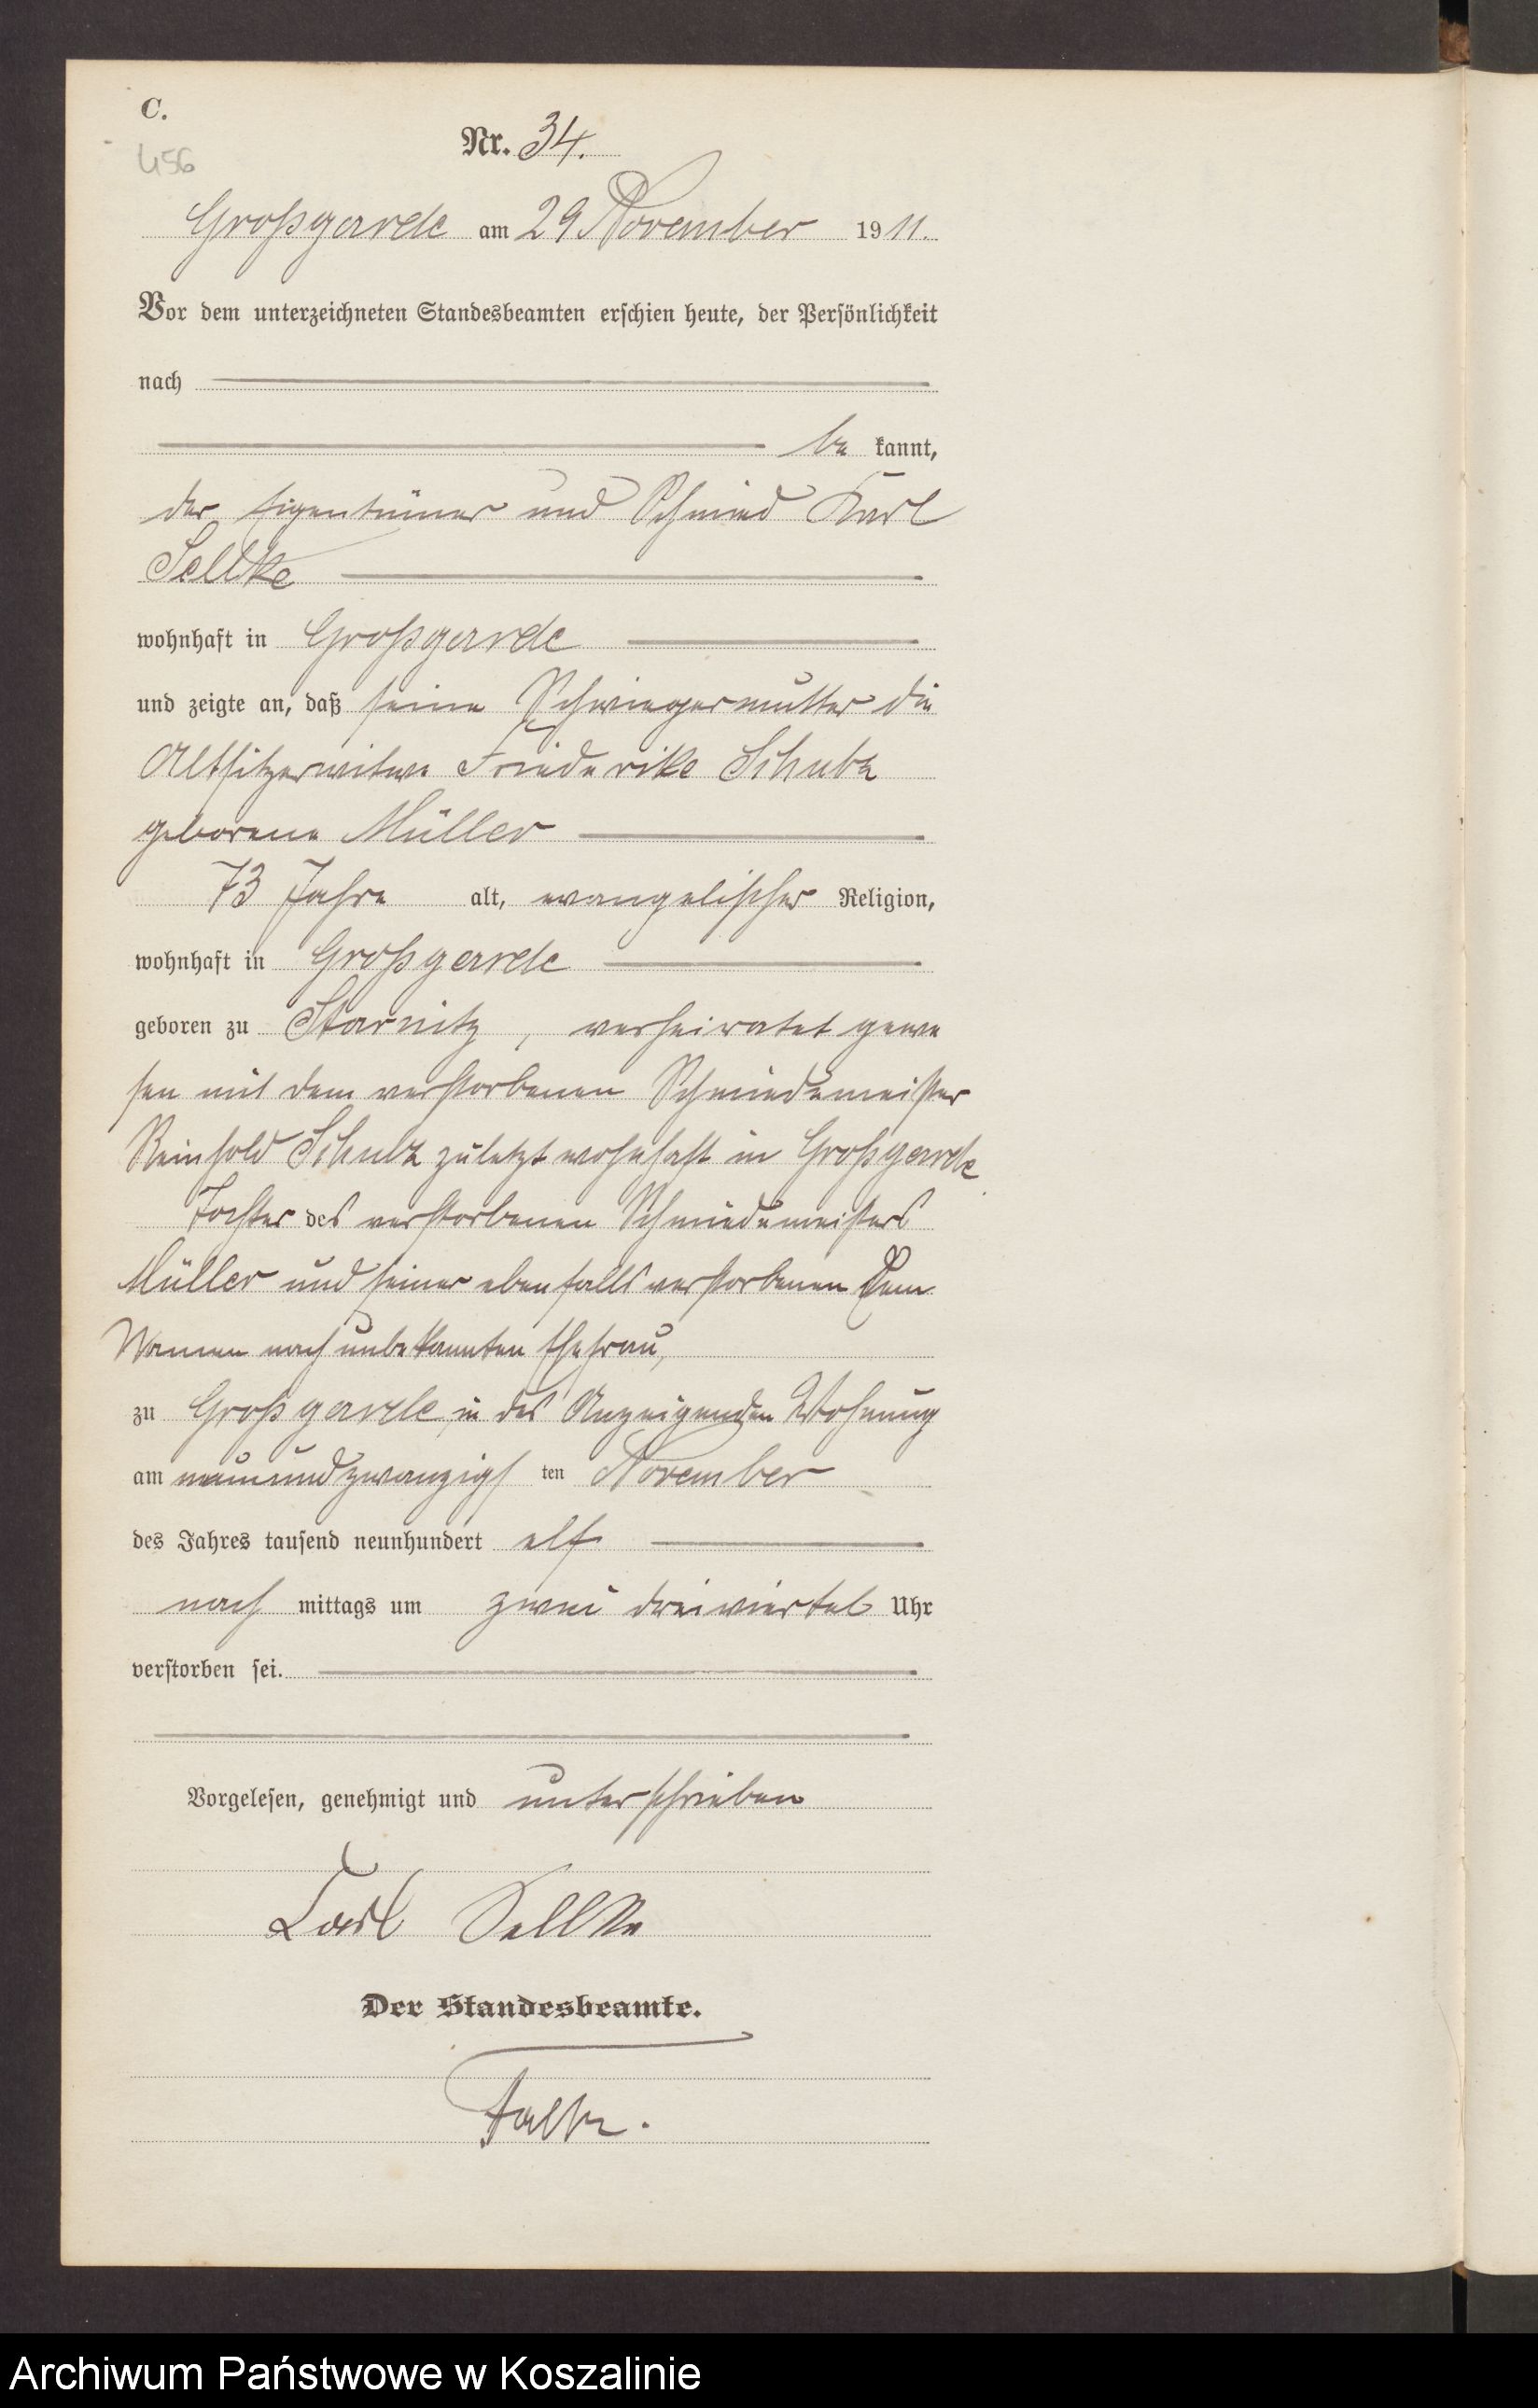 C.
Nr. 34.
456
Großgarde am 29 November 1911.
Vor dem unterzeichneten Standesbeamten erschien heute, der Persönlichkeit
nach
be kannt,
der Eigentümer und Schmied Karl
Sellke
wohnhaft in Großgarde
und zeigte an, daß seine Schwiegermutter die
Altsitzerwitwe Friederike Schulz
geborene Müller
73 Jahre alt, evangelischer Religion,
wohnhaft in Großgarde
geboren zu Starnitz, verheiratet gewe
sen mit dem verstorbenen Schmiedemeister
Reinhold Schulz zuletzt wohnhaft in Großgarde
Tochter des verstorbenen Schmiedemeisters
Müller und seiner ebenfalls verstorbenen Dem
Namen nach unbekannten Ehefrau,
zu Großgarde, in des Anzeigenden Wohnung
am neunundzwanzigs ten November
des Jahres tausend neunhundert elf
nach mittags um zwei dreiviertel Uhr
verstorben sei.
Vorgelesen, genehmigt und unterschrieben
Karl Sellke
Der Standesbeamte.
Archiwum Państwowe w Koszalinie